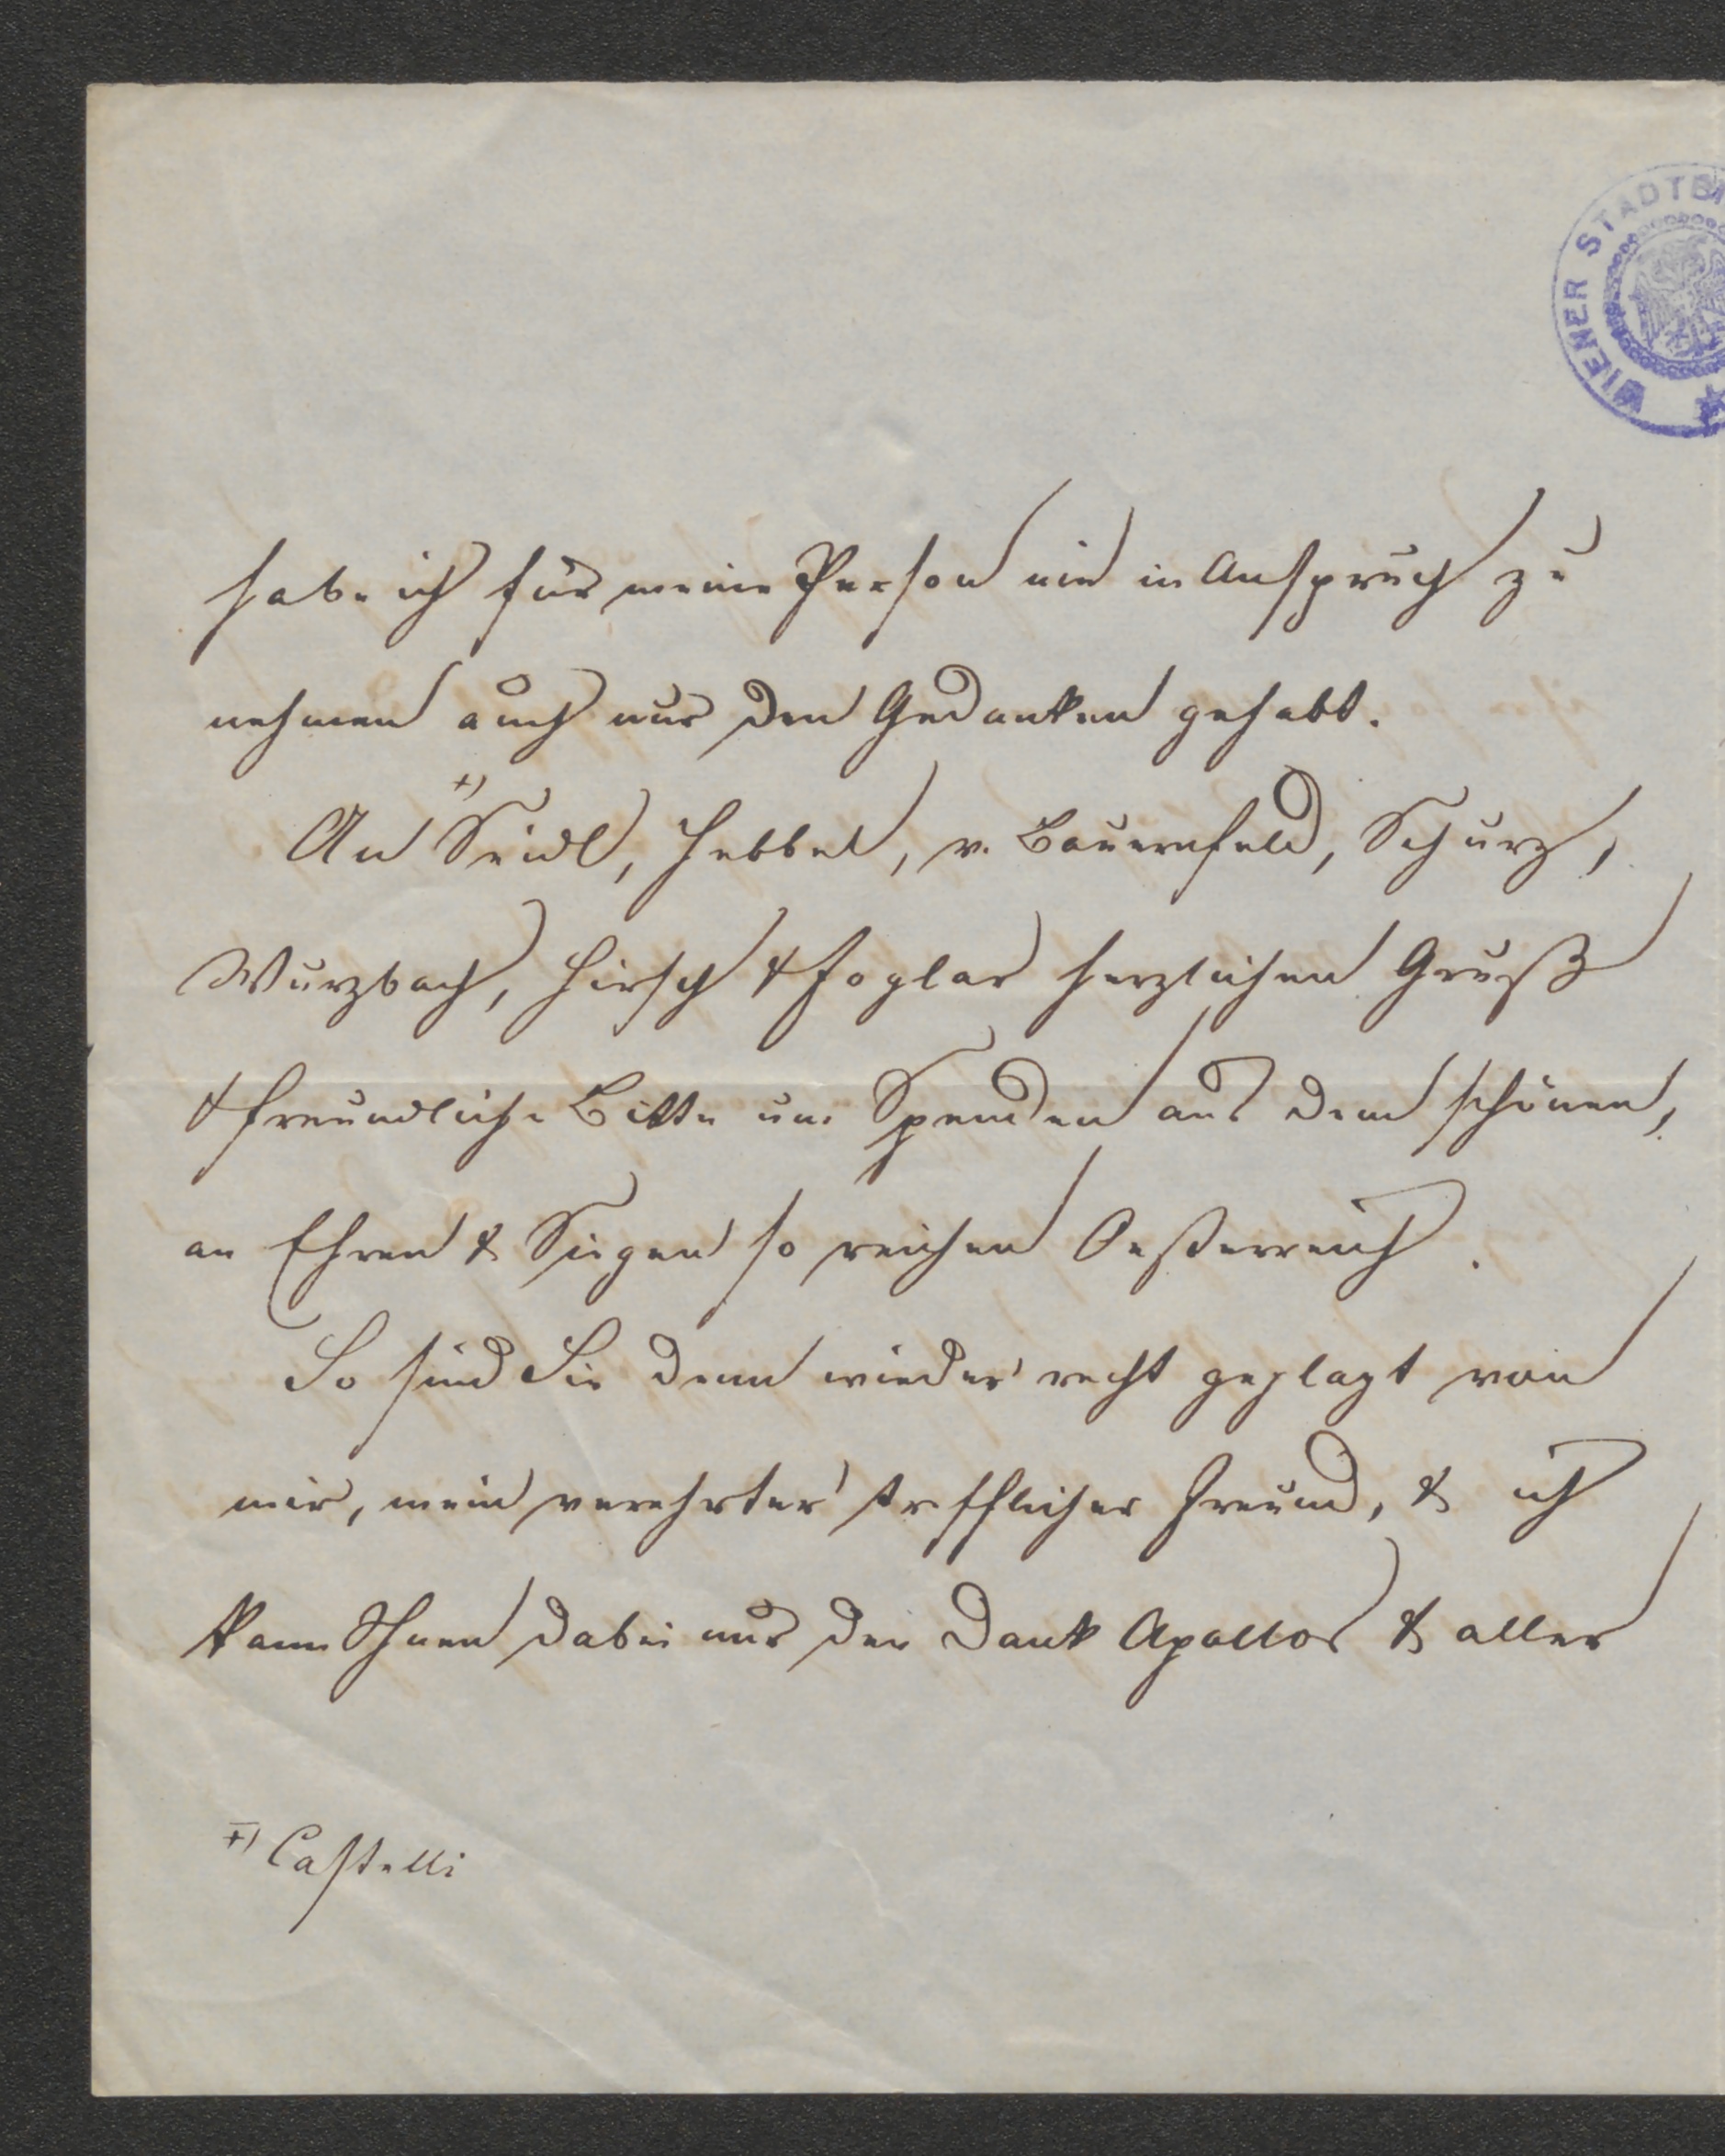 WIENER STADTBI
habe ich für meine Person nie in Anspruch zu
nehmen auch nur den Gedanken gehabt.
An +) Seidl, Hebbel, v. Bauernfeld, Schurz,
Wurzbach, Hirsch & Foglar herzlichen Gruß
& freundliche Bitte um Spenden aus dem schönen,
an Ehren & Siegen so reichen Oesterreich.
So sind Sie denn wieder recht geplagt von
mir, mein verehrter trefflicher Freund, & ich
kann Ihnen dabei nur den Dank Apollos & aller
+) Castelli